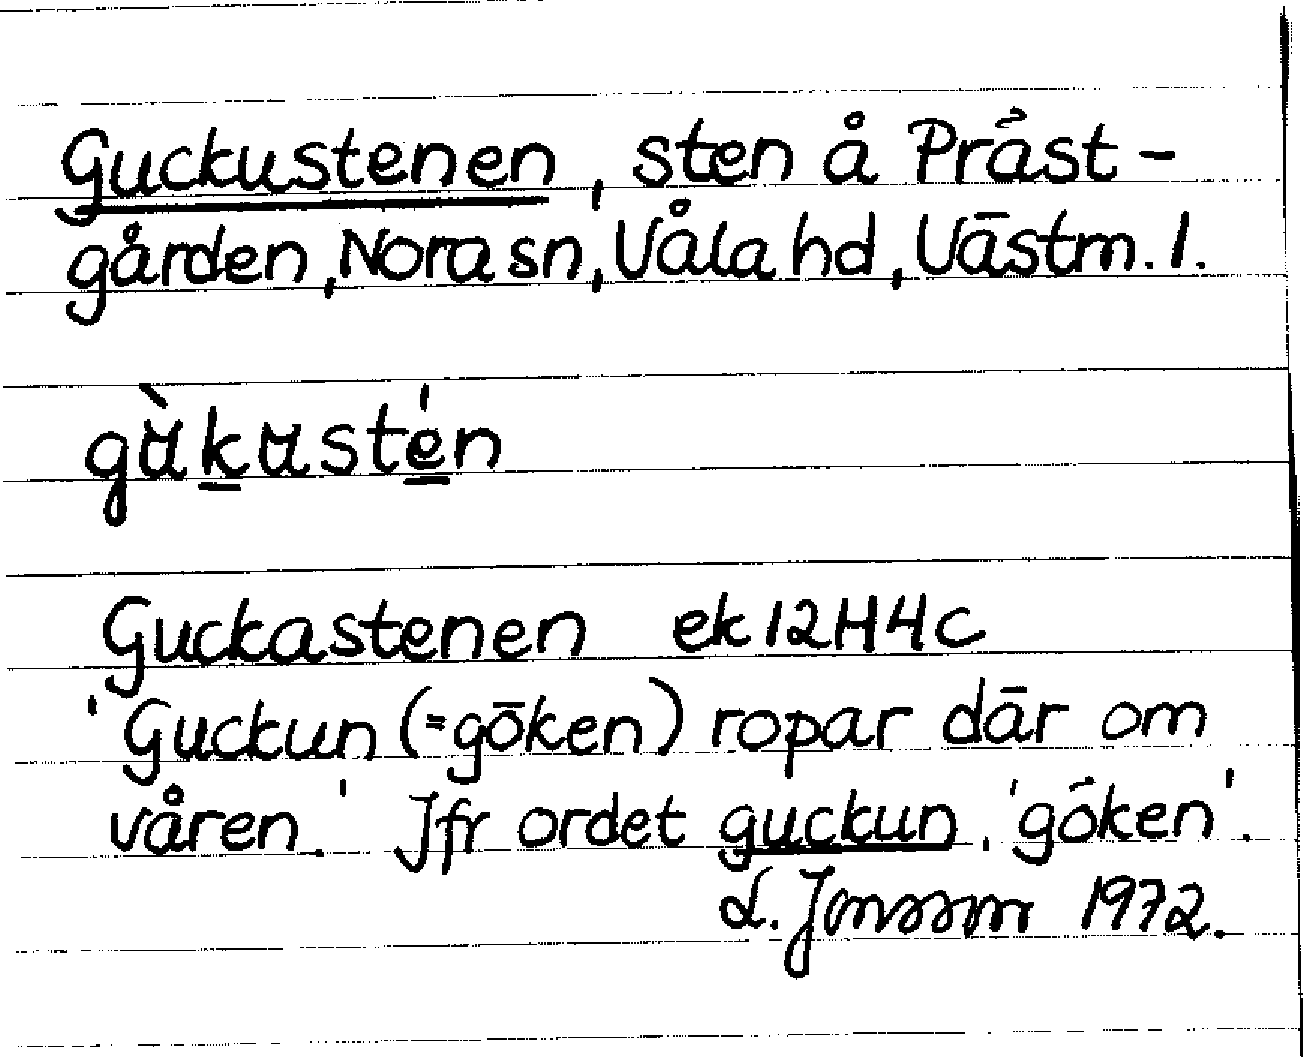 Guckustenen, sten å Präst-
gården, Nora sn, Våla hd, Västm. l.
gùkustén
Guckastenen ek 12H4c
'Guckun (=göken) ropar där om
våren.' Jfr ordet guckun, 'göken'.
L. Jonsson 1972.